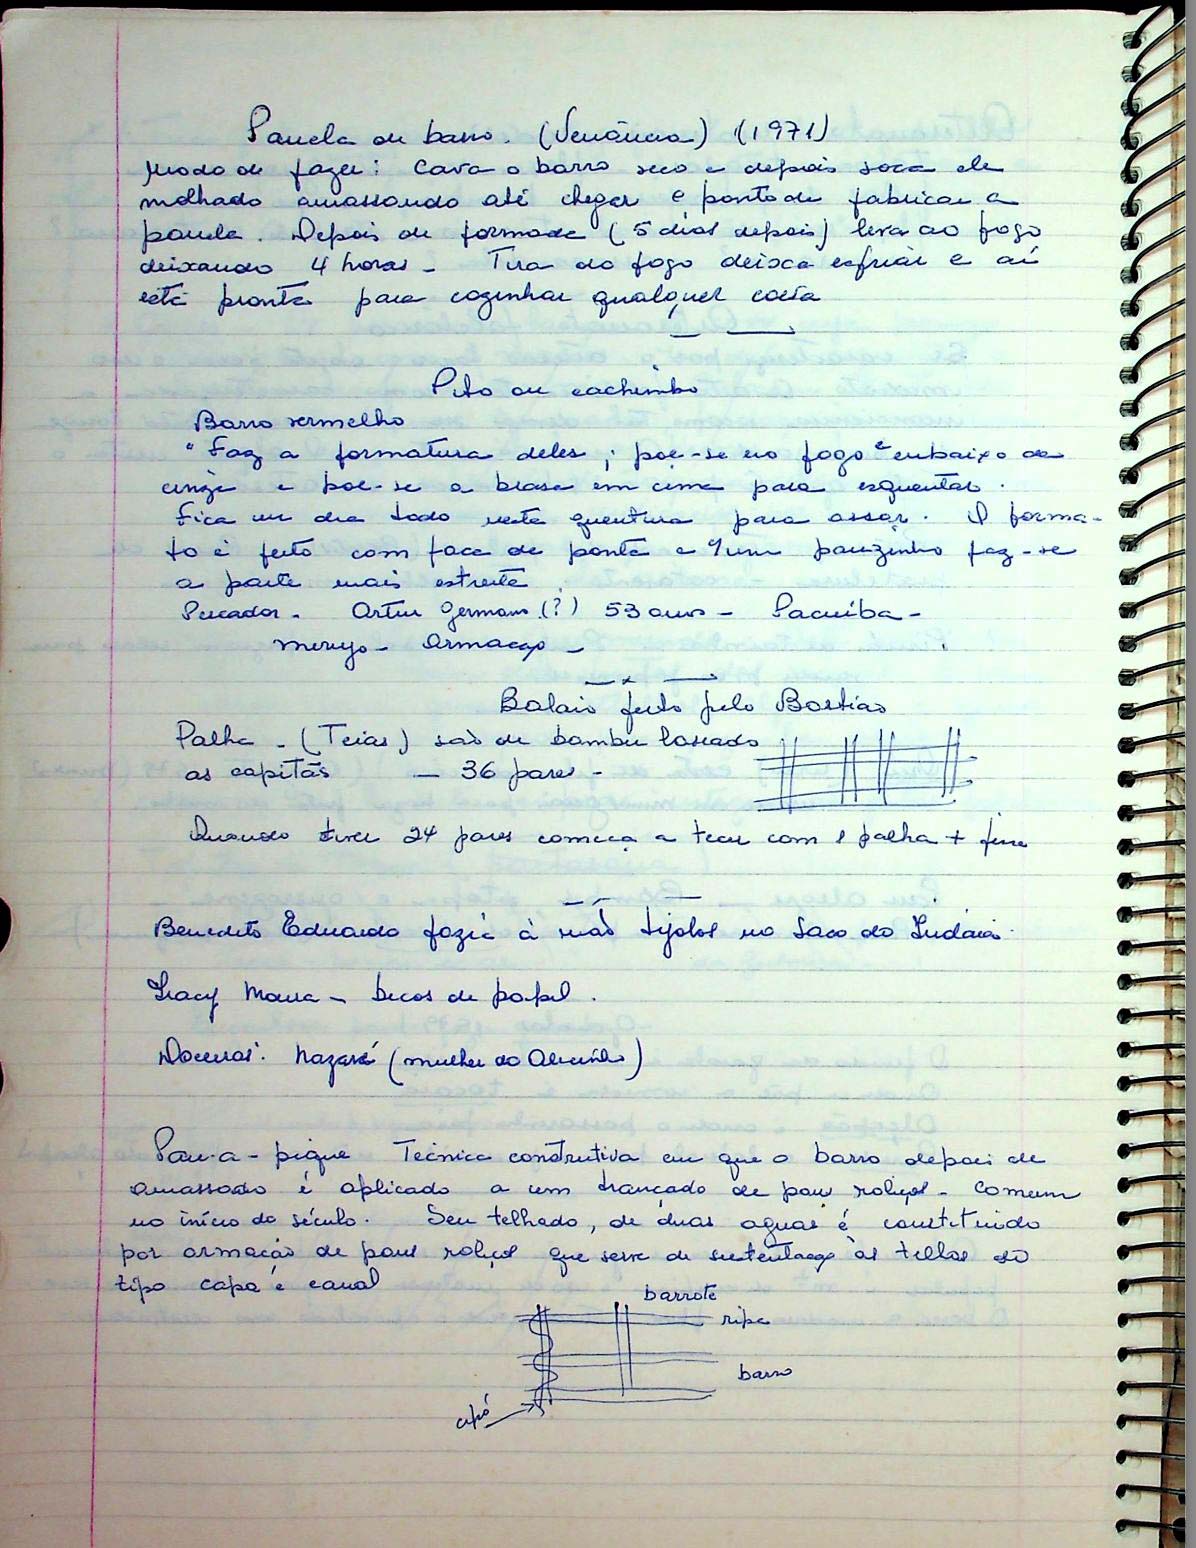 Panela de barro. (Venâncio) (1971)
Modo de fazer: Cava o barro seco e depois soca ele
molhado amassando até chegar o ponto de fabricar a
panela. Depois de formada (5 dias depois) leva ao fogo
deixando 4 horas - Tira do fogo deixa esfriar e aí
está pronta para cozinhar qualquer coisa
Pito ou cachimbo
Barro vermelho
"Faz a formatura deles; põe-se no fogo embaixo da
cinza e põe-se a brasa em cima para esquentar.
Fica um dia todo nesta quentura para assar. O forma-
to é feito com faca de ponta e 1 um pauzinho faz-se
a parte mais estreita
Pescador - Artur Germano (?) 53 anos - Pacuíba -
Armação -
Balaio feito pelo Bastião
Palha - (Teias) são de bambu lascado
as capitãs - 36 pares -
Quando tiver 24 pares começa a tecer com 1 palha + fina
Benedito Eduardo fazia à mão tijolos no Saco do Indaiá.
Iracy Maria - bicos de papel.
Doceiras: Nazaré (mulher do)
Pau-a-pique Técnica construtiva em que o barro depois de
amassado é aplicado a um trançado de pau roliços - Comum
no início do século. Seu telhado, de duas aguas é constituido
por armação de paus roliços que serve de sustentação às telhas do
tipo capa e canal
barrote
ripa
barro
cipó